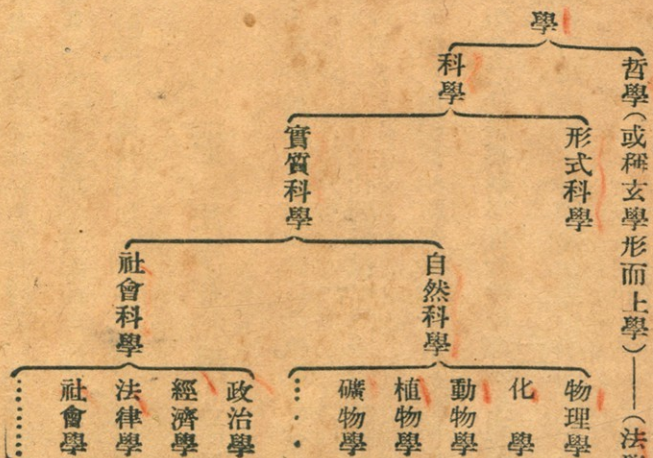 學
哲學(或稱玄學形而上學)——(法
科學
形式科學
實質科學
自然科學
社會科學
物理學
化學
動物學
植物學
礦物學
……
政治學
經濟學
法律學
社會學
……